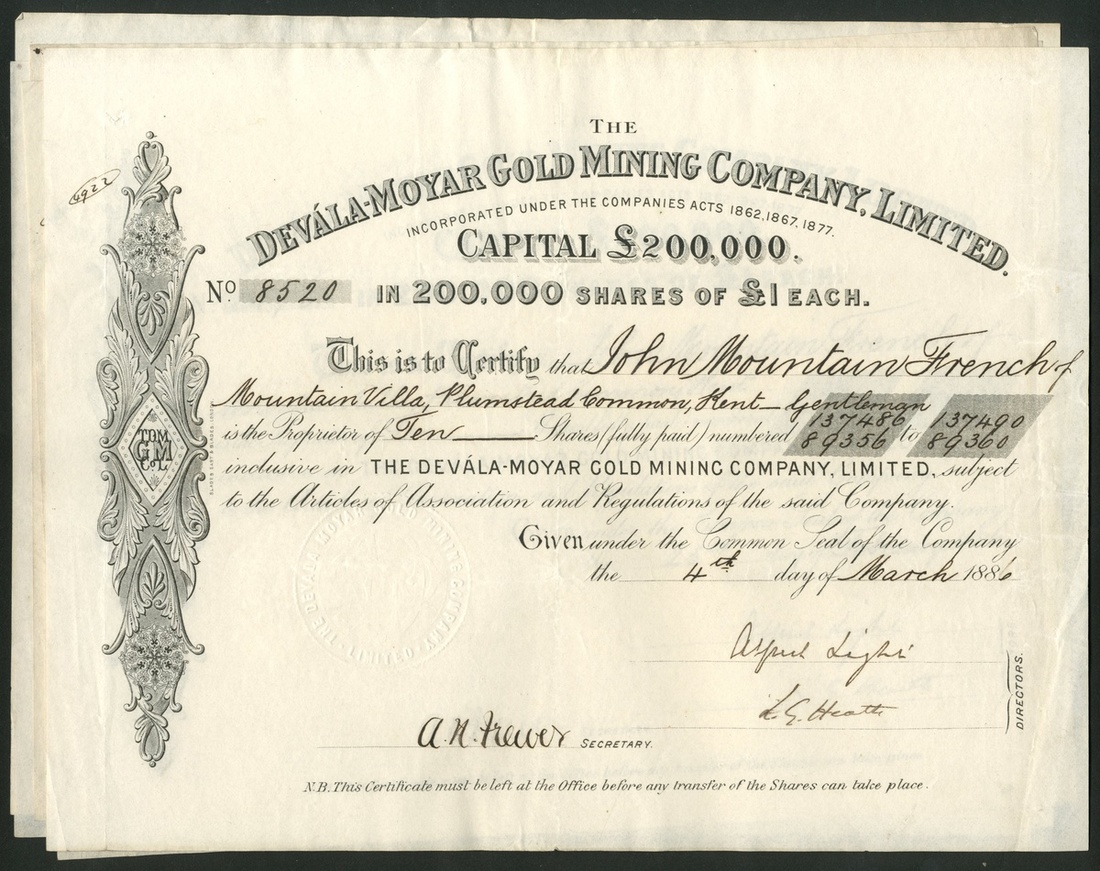 4922
THE
DEVÁLA-MOYAR GOLD MINING COMPANY, LIMITED.
INCORPORATED UNDER THE COMPANIES ACTS 1862, 1867, 1877.
CAPITAL £200,000.
No 8520 IN 200,000 SHARES OF £1 EACH.
This is to Certify that John Mountain French of
Mountain Villa, Plumstead Common, Kent - Gentleman
137486 137490
is the Proprietor of Ten Shares (fully paid) numbered 89356 to 89360
inclusive in THE DEVÁLA-MOYAR GOLD MINING COMPANY, LIMITED, subject
to the Articles of Association and Regulations of the said Company.
Given under the Common Seal of the Company
the 4th day of March 1886
TDM
GM
Co L
THE DEVALA MOYAR GOLD MINING COMPANY LIMITED
Alfred Light
L. G. Heath
DIRECTORS.
SECRETARY.
N.B. This Certificate must be left at the Office before any transfer of the Shares can take place.